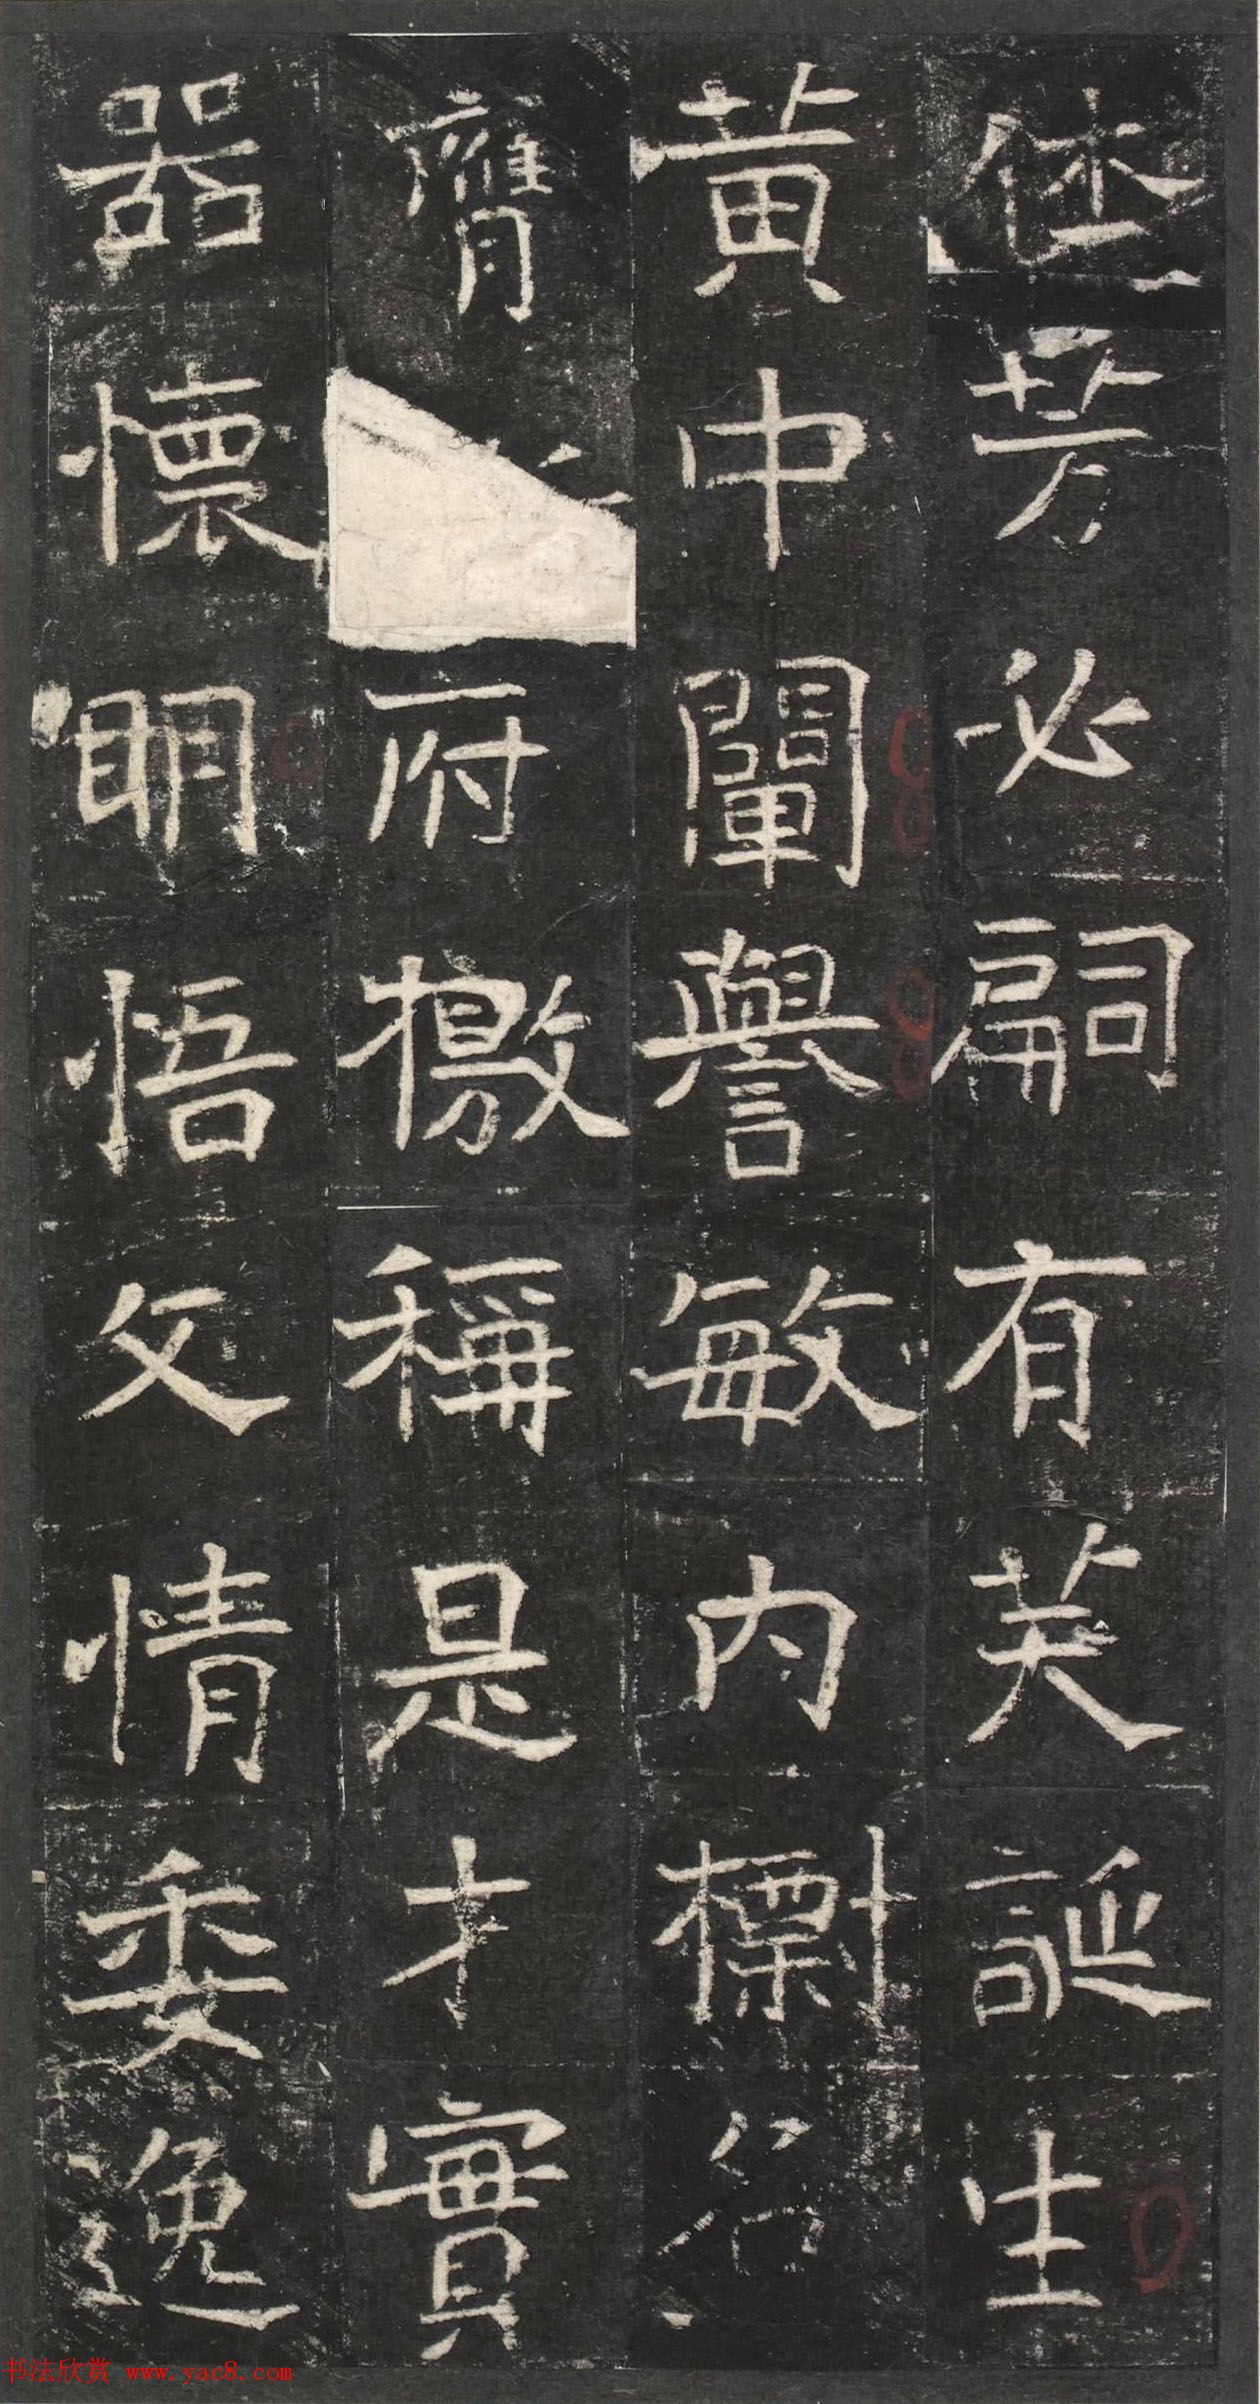 芳必嗣有美誕生
黃中闡譽敏内標
膺府檄稱是才實
器懷明悟文情委逸
书法欣赏 www.yac8.com